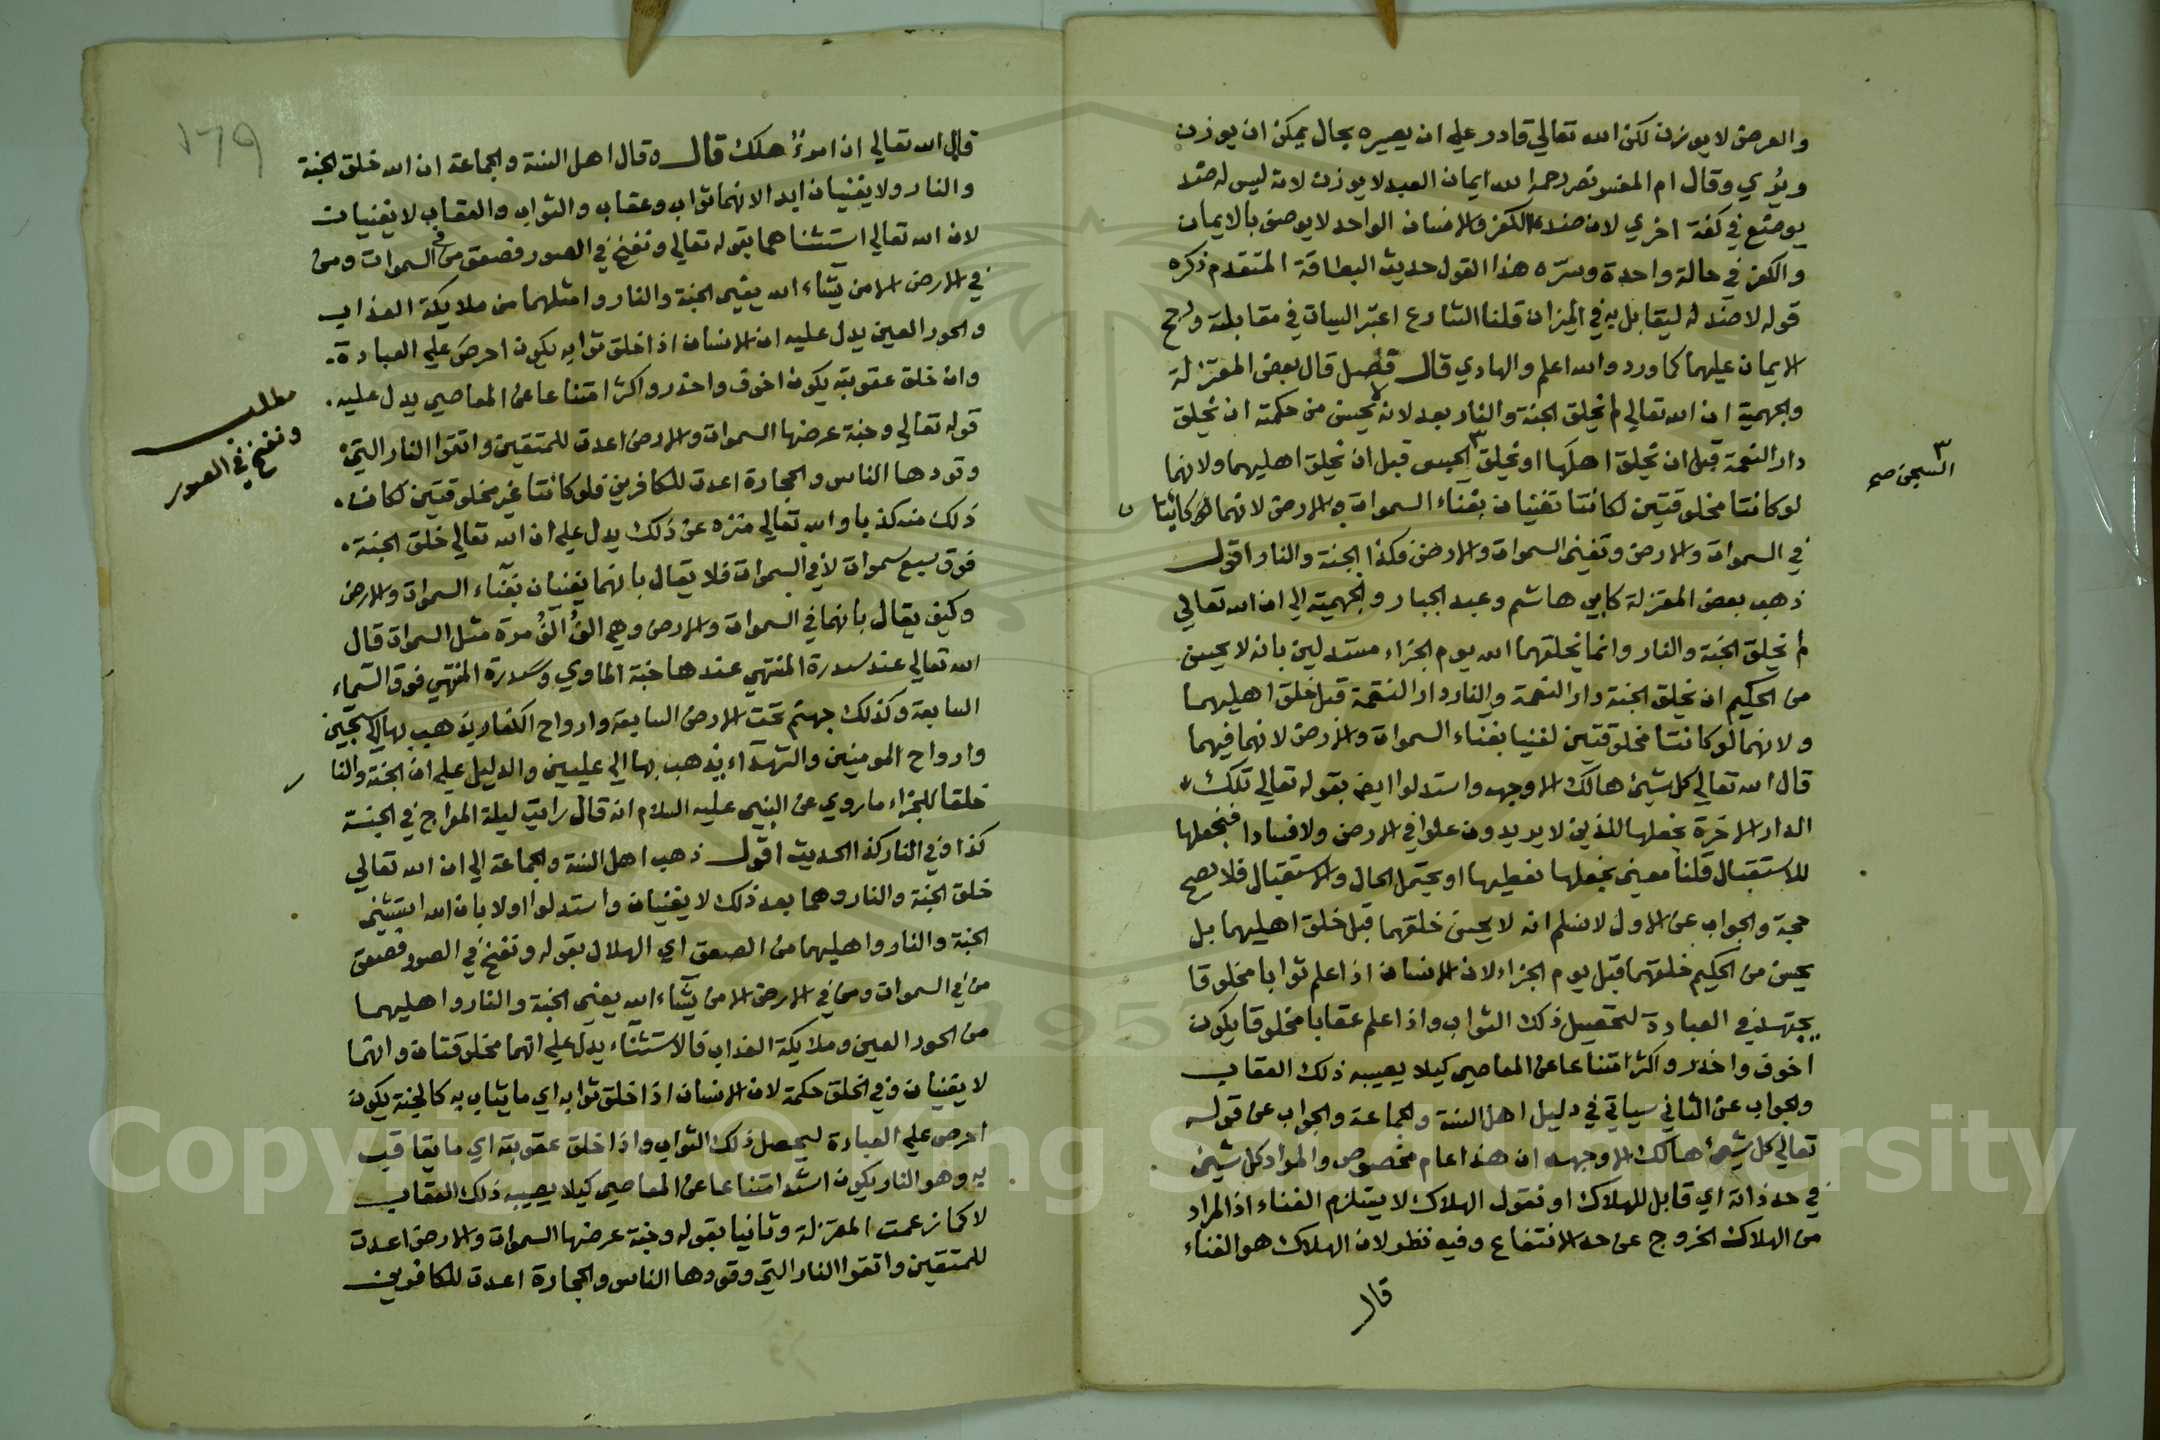 والعرض لا يوزن لكن الله تعالي قادر علي ان يصيره بحال يمكن ان يوزن
ويري وقال ابو المعين نصر رحمه الله ايمان العبد لا يوزن لانه ليس له ضد
يوضع في كفة اخري لان ضده الكفر والانسان الواحد لا يوصف بالايمان
والكفر في حالة واحدة وسره هذا القول حديث البطاقة المتقدم ذكره
قوله لا ضد له ليقابل به في الميزان قلنا الشارع اعتبر السيات في مقابلته ورجح
الايمان عليهما كما ورد والله اعلم والهادي قال فصل قال بعض المعتزلة
والجهمية ان الله تعالي لم يخلق الجنة والنار بعد لانه لا يحسن من حكمته ان يخلق
دار النعمة قبل ان يخلق اهلها او يخلق الحبس قبل ان يخلق اهليهما ولانهما
السجن صح
لو كانتا مخلوقتين لكانتا تفنيان بفناء السموات والارض لانهما لو كانتا
في السموات والارض وتفني السموات والارض فكذا الجنة والنار اقول
ذهب بعض المعتزلة كابي هاشم وعبد الجبار والجهمية الي ان الله تعالي
لم يخلق الجنة والنار وانما يخلقهما الله يوم الجزاء مستدلين بانه لا يحسن
من الحكيم ان يخلق الجنة دار النعمة والنار دار النقمة قبل خلق اهليهما
ولانهما لو كانتا مخلوقتين لفنيا بفناء السموات والارض لانهما فيهما
قال الله تعالي كل شيئ هالك الا وجهه واستدلوا ايض بقوله تعالي تلك
الدار الاخرة نجعلها للذين لا يريدون علوا في الارض ولا فسادا فنجعلها
للاستقبال قلنا معني نجعلها نعطيها او يحتمل الحال والاستقبال فلا يصح
حجة والجواب عن الاول لا نسلم انه لا يحسن خلقهما قبل خلق اهليهما بل
يحسن من الحكيم خلقهما قبل يوم الجزاء لان الانسان اذا علم ثوابا مخلوقا
يجتهد في العبادة لتحصيل ذلك الثواب واذا علم عقابا مخلوقا يكون
اخوف واحذر واكثر امتناعا عن المعاصي كيلا يصيبه ذلك العقاب
والجواب عن الثاني سياتي في دليل اهل السنة والجماعة والجواب عن قوله
تعالي كل شيئ هالك الا وجهه ان هذا عام مخصوص والمراد كل شيئ
في حد ذاته اي قابل للهلاك او نقول الهلاك لا يستلزم الفناء اذ المراد
من الهلاك الخروج عن حد الانتفاع وفيه نظر لان الهلاك هو الفناء
قال
١٧٩
قال الله تعالي ان امرؤ هلك قال وقال اهل السنة والجماعة ان الله خلق الجنة
والنار ولا يفنيان ابدا لانهما ثواب وعقاب والثواب والعقاب لا يفنيان
لان الله تعالي استثناهما بقوله تعالي ونفخ في الصور فصعق من في السموات ومن
في الارض الا من يشاء الله يعني الجنة والنار وامثلهما من ملايكة العذاب
والحور العين يدل عليه ان الانسان اذا خلق ثوابه يكون احرص علي العبادة
وان خلق عقوبته يكون اخوف واحذر واكثر امتناعا عن المعاصي يدل عليه
مطلب
ونفخ في الصور
قوله تعالي وجنة عرضها السموات والارض اعدت للمتقين واتقوا النار التي
وقودها الناس والحجارة اعدت للكافرين فلو كانتا غير مخلوقتين لكان
ذلك منه كذبا والله تعالي منزه عن ذلك يدل علي ان الله تعالي خلق الجنة
فوق سبع سموات لا في السموات فلا يقال بانهما يفنيان بفناء السموات والارض
وكيف يقال بانهما في السموات والارض وهي الف الف مرة مثل السموات قال
الله تعالي عند سدرة المنتهي عندها جنة الماوي وسدرة المنتهي فوق السماء
السابعة وكذلك جهنم تحت الارض السابعة وارواح الكفار يذهب بها الي سجين
وارواح المومنين والشهداء يذهب بها الي عليين والدليل علي ان الجنة والنا
خلقا للجزاء ما روي عن النبي عليه السلام انه قال رايت ليلة المعراج في الجنة
كذا وفي النار كذا الحديث اقول ذهب اهل السنة والجماعة الي ان الله تعالي
خلق الجنة والنار وهما بعد ذلك لا يفنيان واستدلوا اولا بان الله استثني
الجنة والنار واهليهما من الصعق اي الهلاك بقوله ونفخ في الصور فصعق
من في السموات ومن في الارض الا من يشاء الله يعني الجنة والنار واهليهما
من الحور العين وملايكة العذاب فالاستثناء يدل علي انهما مخلوقتان وانهما
لا يفنيان وفي الخلق حكمة لان الانسان اذا خلق ثوابه اي ما يثاب به كالجنة يكون
احرص علي العبادة ليحصل ذلك الثواب واذا خلق عقوبته اي ما يعاقب
به وهو النار يكون اشد امتناعا عن المعاصي كيلا يصيبه ذلك العقاب
لا كما زعمت المعتزلة وثانيا بقوله وجنة عرضها السموات والارض اعدت
للمتقين واتقوا النار التي وقودها الناس والحجارة اعدت للكافرين
Copyright © King Saud University
195